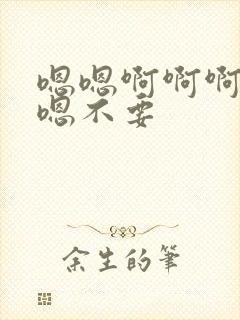 嗯嗯啊啊啊
嗯不要
余生的筆